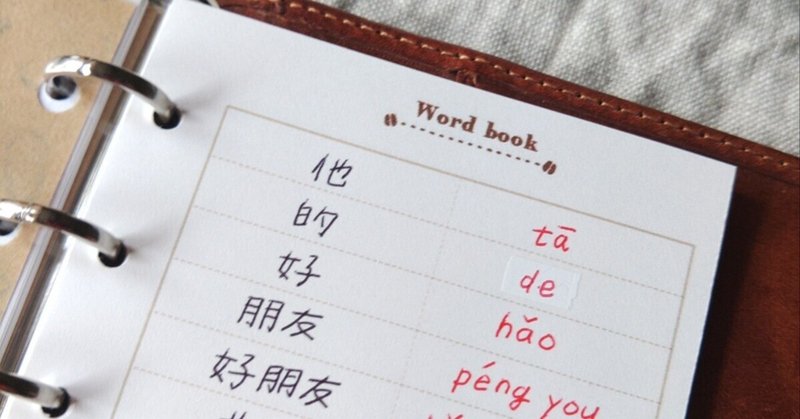 Word book
他 tā
的 de
好 hǎo
朋友 péng you
好朋友